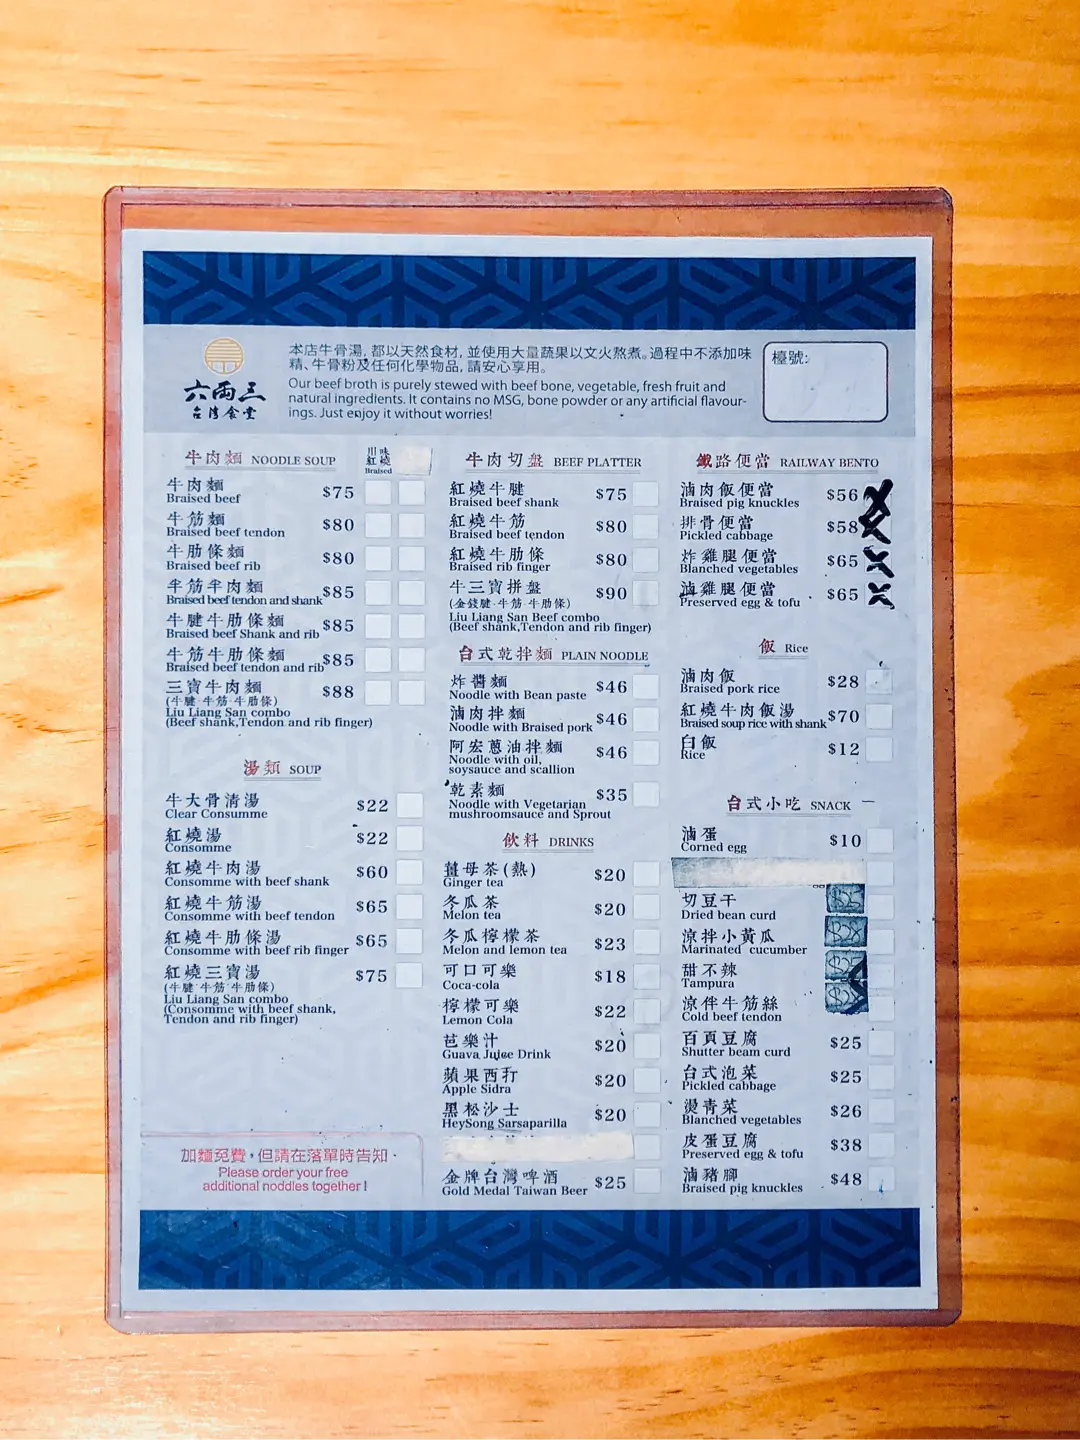 六兩三
台灣食堂
本店牛骨湯, 都以天然食材, 並使用大量蔬果以文火熬煮。過程中不添加味
精、牛骨粉及任何化學物品, 請安心享用。
Our beef broth is purely stewed with beef bone, vegetable, fresh fruit and
natural ingredients. It contains no MSG, bone powder or any artificial flavour-
ings. Just enjoy it without worries!
檯號:
牛肉麵 NOODLE SOUP
川味
紅燒
Braised
牛肉麵 $75
Braised beef
牛筋麵 $80
Braised beef tendon
牛肋條麵 $80
Braised beef rib
半筋半肉麵 $85
Braised beef tendon and shank
牛腱牛肋條麵 $85
Braised beef Shank and rib
牛筋牛肋條麵 $85
Braised beef tendon and rib
三寶牛肉麵 $88
(牛腱·牛筋·牛肋條)
Liu Liang San combo
(Beef shank,Tendon and rib finger)
湯類 SOUP
牛大骨清湯 $22
Clear Consumme
紅燒湯 $22
Consomme
紅燒牛肉湯 $60
Consomme with beef shank
紅燒牛筋湯 $65
Consomme with beef tendon
紅燒牛肋條湯 $65
Consomme with beef rib finger
紅燒三寶湯 $75
(牛腱·牛筋·牛肋條)
Liu Liang San combo
(Consomme with beef shank,
Tendon and rib finger)
加麵免費，但請在落單時告知、
Please order your free
additional noddles together !
牛肉切盤 BEEF PLATTER
紅燒牛腱 $75
Braised beef shank
紅燒牛筋 $80
Braised beef tendon
紅燒牛肋條 $80
Braised rib finger
牛三寶拼盤 $90
(金錢腱·牛筋·牛肋條)
Liu Liang San Beef combo
(Beef shank,Tendon and rib finger)
台式乾拌麵 PLAIN NOODLE
炸醬麵 $46
Noodle with Bean paste
滷肉拌麵 $46
Noodle with Braised pork
阿宏蔥油拌麵 $46
Noodle with oil,
soysauce and scallion
乾素麵 $35
Noodle with Vegetarian
mushroomsauce and Sprout
飲料 DRINKS
薑母茶(熱) $20
Ginger tea
冬瓜茶 $20
Melon tea
冬瓜檸檬茶 $23
Melon and lemon tea
可口可樂 $18
Coca-cola
檸檬可樂 $22
Lemon Cola
芭樂汁 $20
Guava Juice Drink
蘋果西打 $20
Apple Sidra
黑松沙士 $20
HeySong Sarsaparilla
金牌台灣啤酒 $25
Gold Medal Taiwan Beer
鐵路便當 RAILWAY BENTO
滷肉飯便當 $56
Braised pig knuckles
排骨便當 $58
Pickled cabbage
炸雞腿便當 $65
Blanched vegetables
滷雞腿便當 $65
Preserved egg & tofu
飯 Rice
滷肉飯 $28
Braised pork rice
紅燒牛肉飯湯 $70
Braised soup rice with shank
白飯 $12
Rice
台式小吃 SNACK
滷蛋 $10
Corned egg
切豆干
Dried bean curd
涼拌小黃瓜
Marinated cucumber
甜不辣
Tampura
涼伴牛筋絲
Cold beef tendon
百頁豆腐 $25
Shutter beam curd
台式泡菜 $25
Pickled cabbage
燙青菜 $26
Blanched vegetables
皮蛋豆腐 $38
Preserved egg & tofu
滷豬腳 $48
Braised pig knuckles